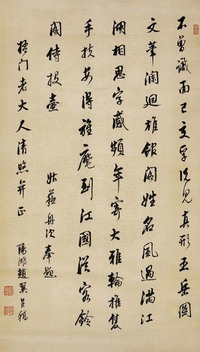 不曾識面已交孚況見真形五岳圖
文筆瀾迴雄飯閣姓名風過滿江
湖相思字感頻年寄大雅輪推隻
手扶安得雅麾到江國從容鈴
閣侍投壺
姑蘇舟次奉題
梧門老大人清照並正
陽湖趙翼呈稿